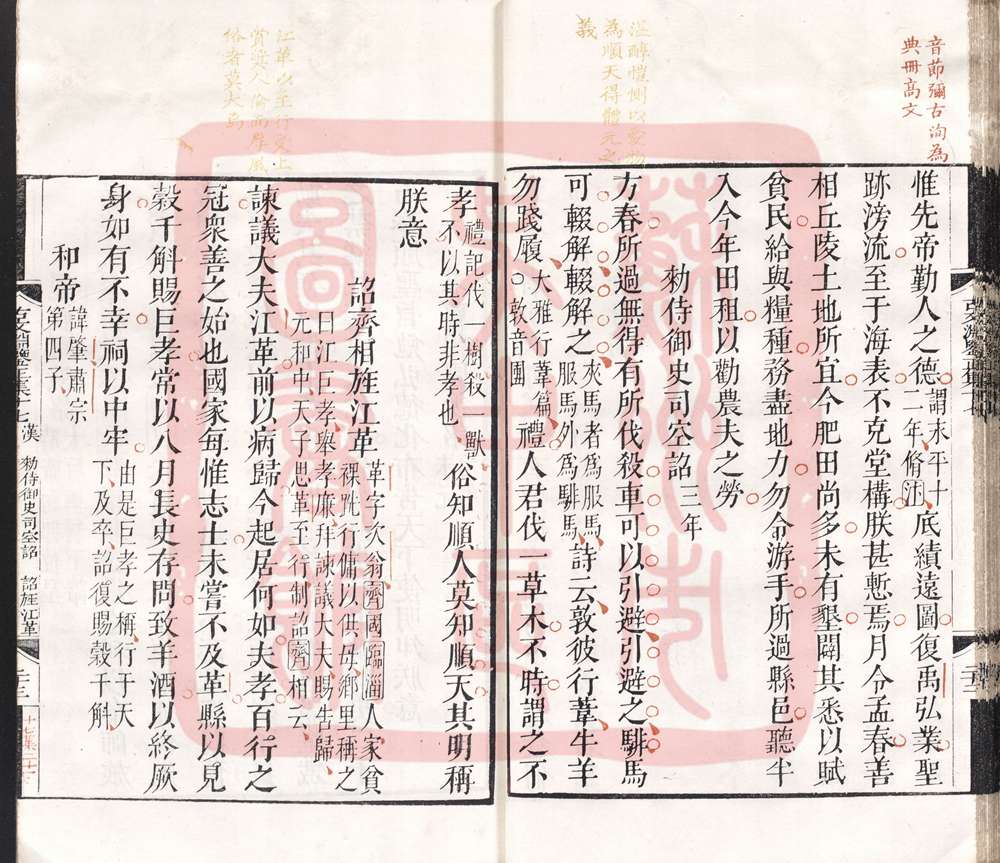 音節彌古洵為
典冊高文
溫醇愷惻以愛物
為順天得體元之
義
惟先帝勤人之德謂末平十二年脩汴底績遠圖復禹弘業聖
跡滂流至于海表不克堂構朕甚慙焉月令孟春善
相丘陵土地所宜今肥田尚多未有墾闢其悉以賦
貧民給與糧種務盡地力勿令游手所過縣邑聽半
入今年田租以勸農夫之勞
勑侍御史司空詔三年
方春所過無得有所伐殺車可以引避引避之騑馬
可輟解輟解之夾馬者爲服馬服馬外爲騑馬詩云敦彼行葦牛羊
勿踐履大雅行葦篇○敦音團禮人君伐一草木不時謂之不
孝禮記伐一樹殺一獸不以其時非孝也俗知順人莫知順天其明稱
朕意
詔齊相旌江革革字次翁齊國臨淄人家貧裸跣行傭以供母鄉里稱之
曰江巨孝舉孝廉拜諫議大夫賜告歸元和中天子思革至行制詔齊相云
諫議大夫江革前以病歸今起居何如夫孝百行之
冠衆善之始也國家每惟志士未嘗不及革縣以見
穀千斛賜巨孝常以八月長史存問致羊酒以終厥
身如有不幸祠以中牢由是巨孝之稱行于天下及卒詔復賜穀千斛
和帝諱肇肅宗第四子
江革以至行受上
賞獎人倫而厚風
俗者莫大焉
古文淵鑒正集十七 漢 勑侍御史司空詔 詔旌江革